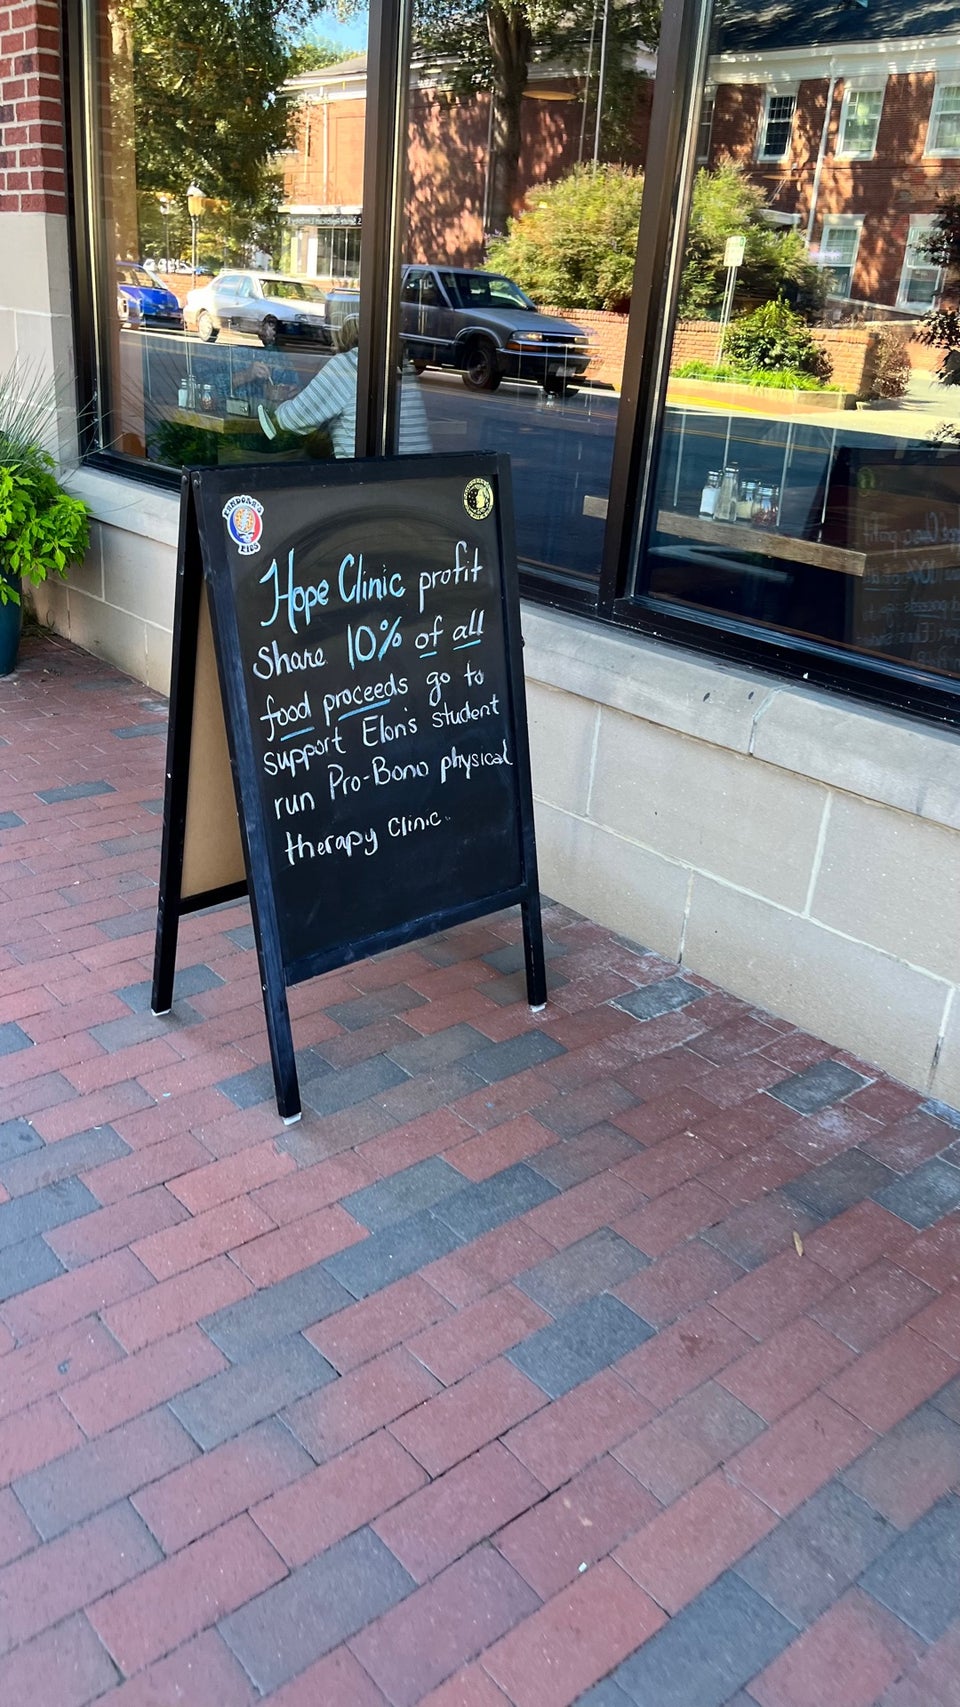 PANDORA'S
PIES
Hope Clinic profit
share 10% of all
food proceeds go to
support Elon's student
run Pro-Bono physical
therapy Clinic.